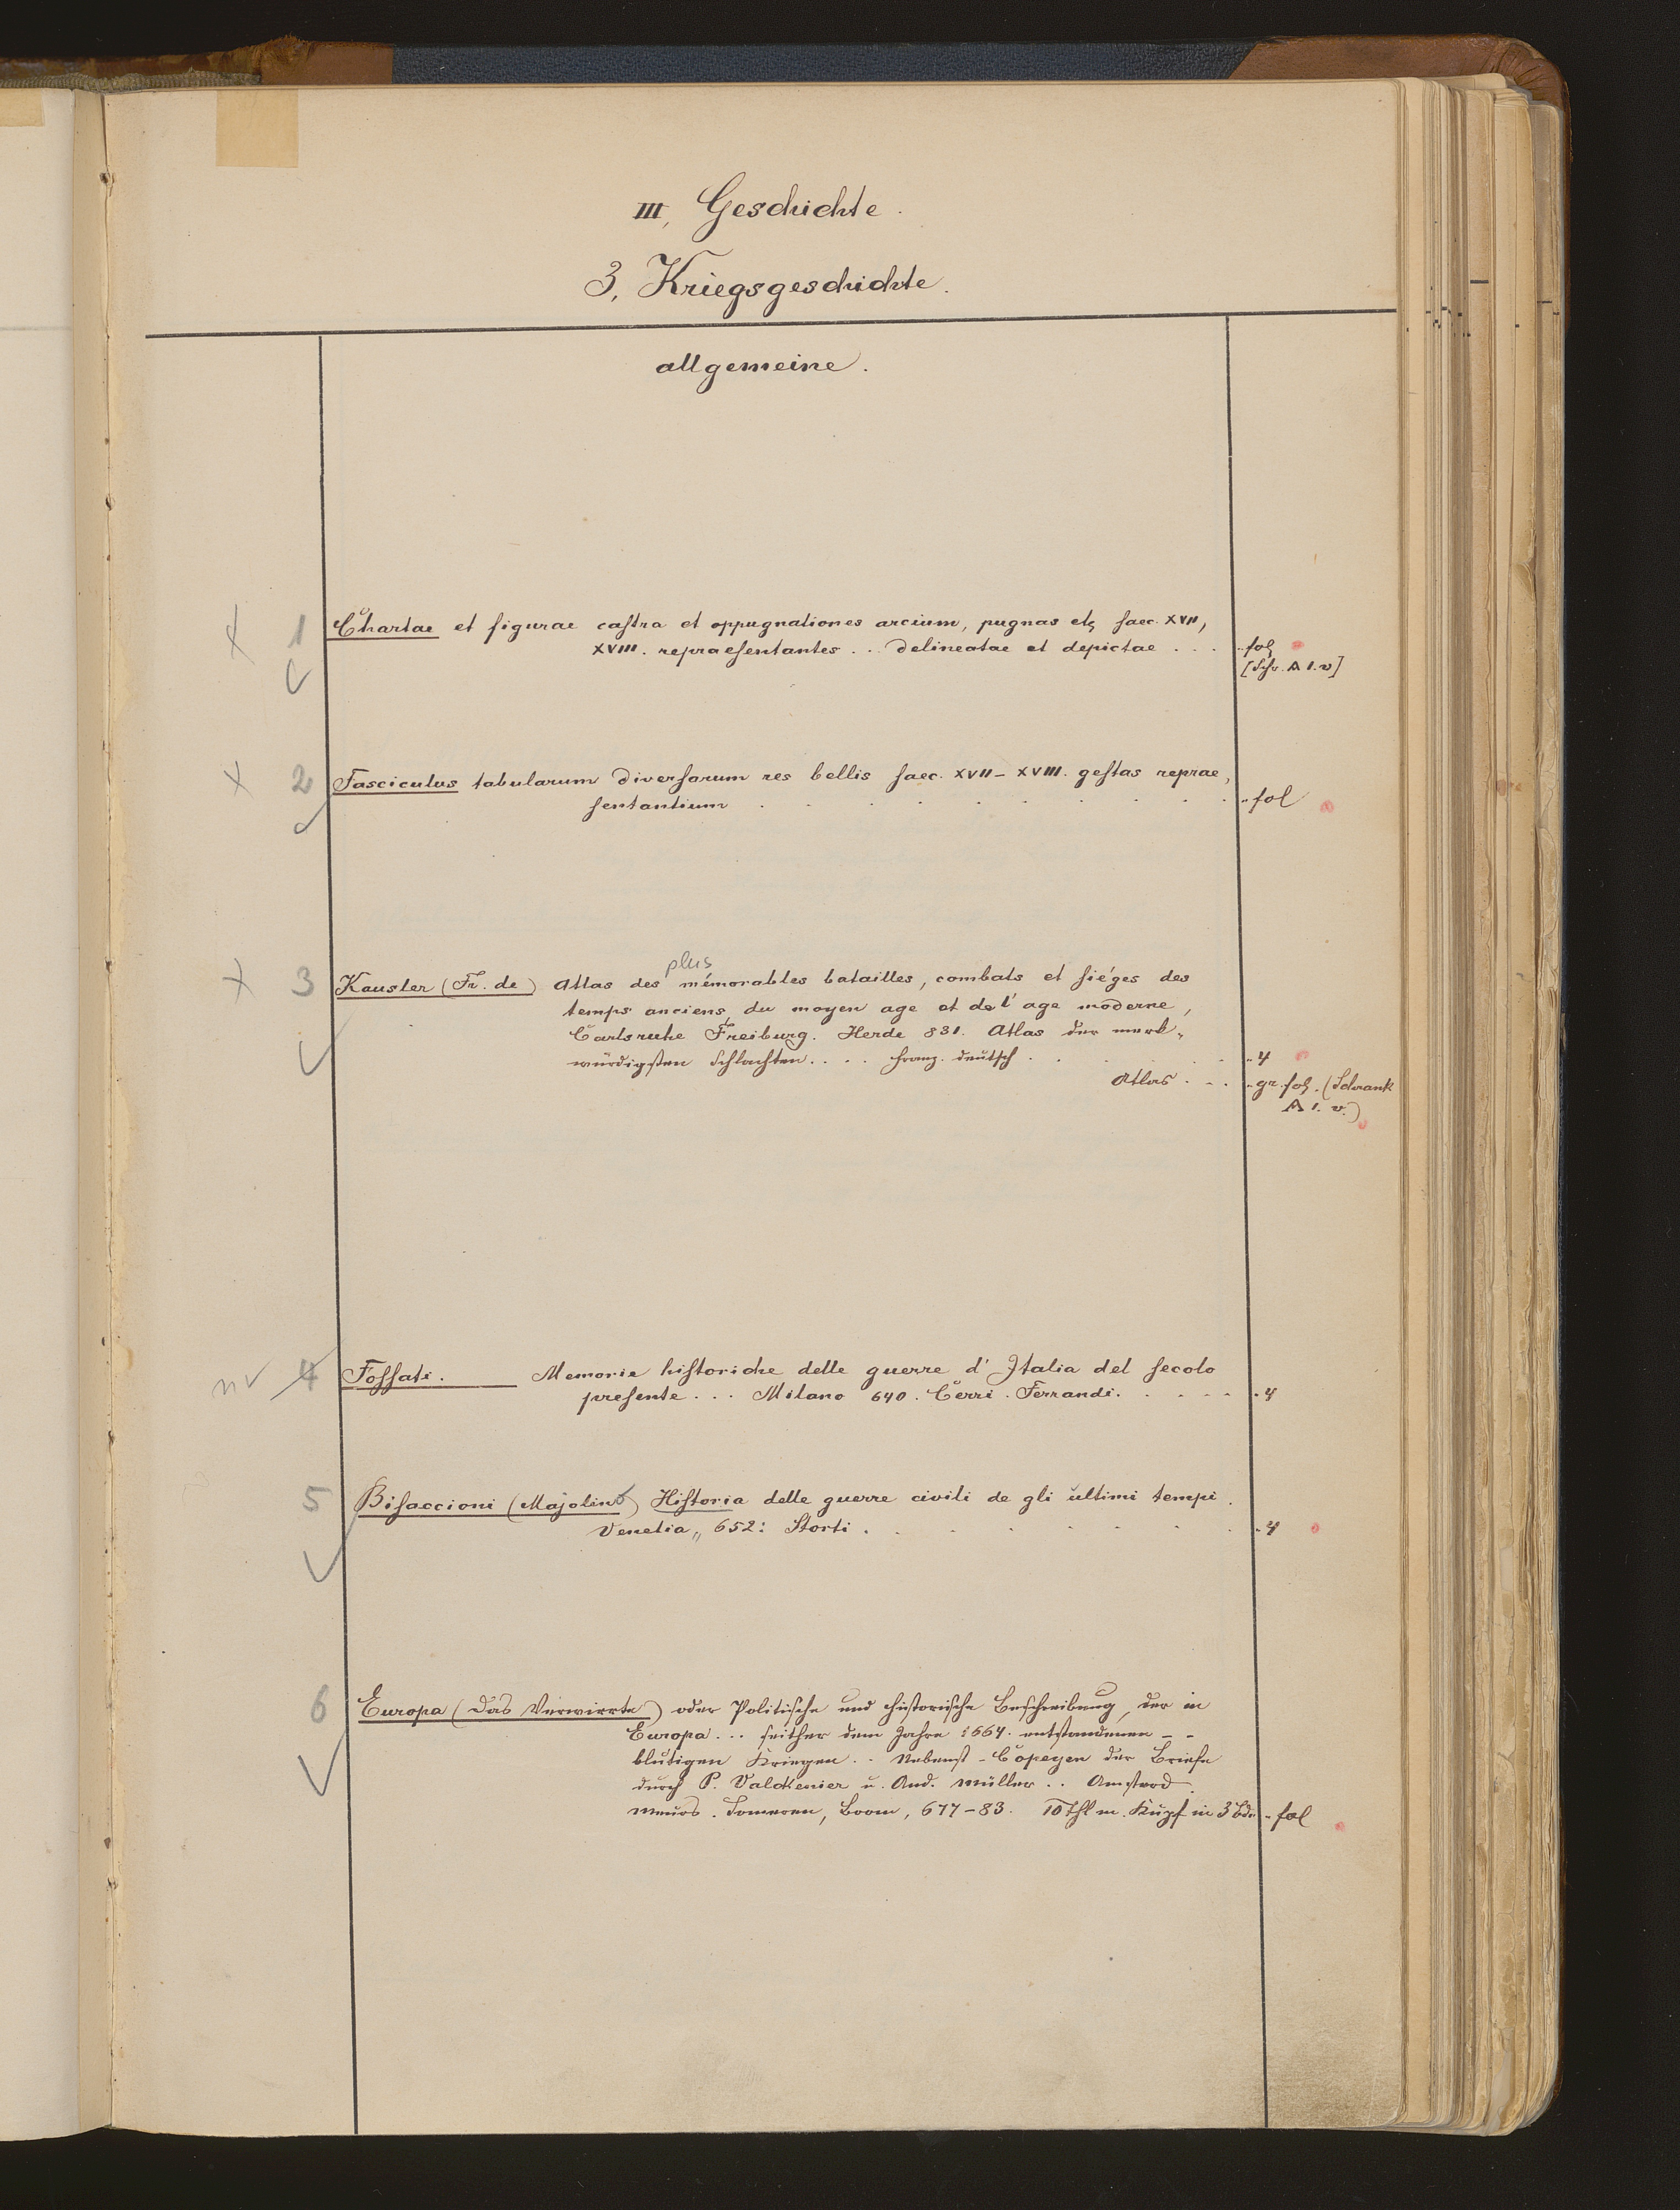 III, Geschichte.
3, Kriegsgeschichte.
allgemeine.
1 Chartae et figurae castra et oppugnationes arcium, pugnas etz saec. XVII,
XVIII. repraesentantes . . delineatae et depictae . . . „fol
[Schr. A I. v]
2 Fasciculus tabularum diversarum res bellis saec. XVII-XVIII. gestas reprae,
sentantium „fol
plus
3 Kausler (Fr. de) Atlas des mémorables batailles, combats et siéges des
temps anciens, du moyen age et de l' age moderne,
Carlsruhe Freiburg. Herde 831. Atlas der merk„
würdigsten Schlachten . . . . franz. deutsch . „4
Atlas . . . „gr. fol. (Schrank
A I. v.)
nv 4 Fossati. Memorie historiche delle guerre d' Italia del secolo
presente . . . Milano 640. Cerri. Ferrandi. „4
5 Bisaccioni (Majolino) Historia delle guerre civili de gli ultimi tempi.
Venetia„ 652: Storti . „4
6 Europa (Das Verwirrte) oder Politische und historische Beschreibung, der in
Europa . . . seither dem Jahre 1664. entstandenen - -
blutigen Kriegen . . Nebenst - Copeyen der Briefe
durch P. Valckenier u. And. Müller . . Amsterd.
Meurs. Someren, Boom, 677-83. 10 Thl m. Kupf in 3 Bdn „fol